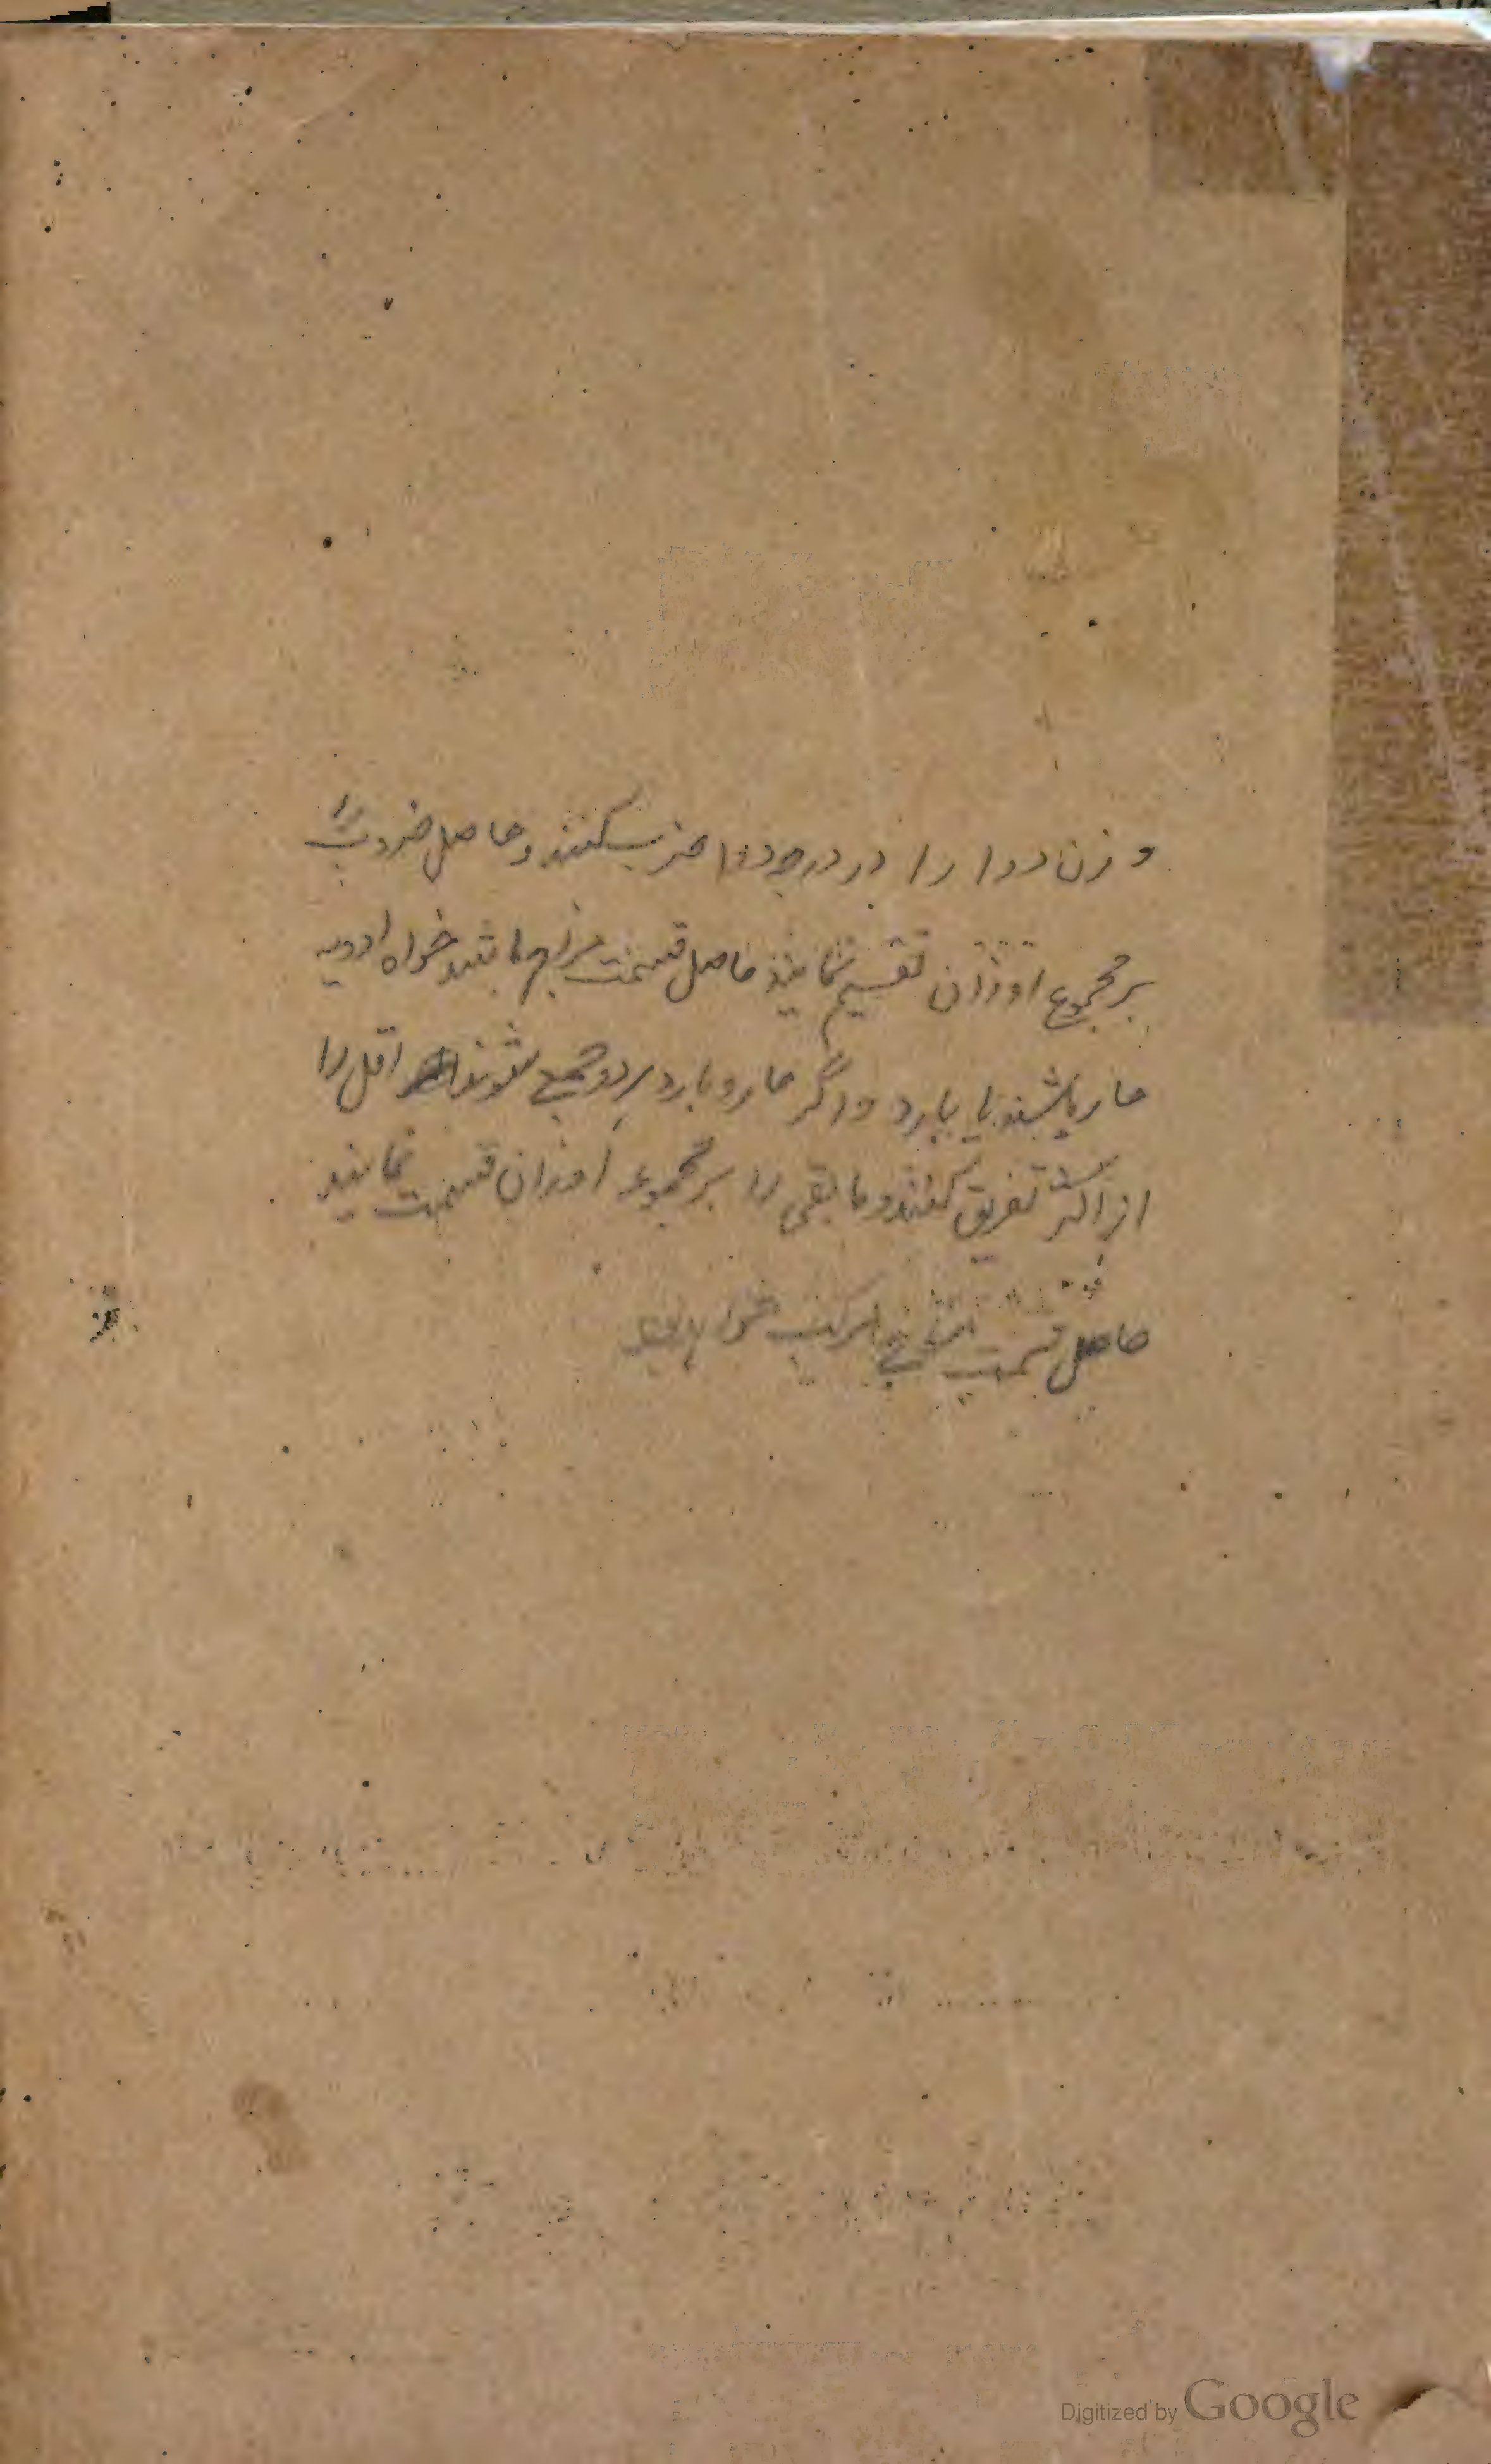 وزن دوا را در درجه دوا ضرب کنند و حاصل ضرب را
بر مجموع اوزان تقسیم نمایند حاصل قسمت مزاج باشد خواه ادویه
حار باشند یا بارد و اگر حار و بارد هردو جمع شوند اقل را
از اکثر تفریق کنند و مابقی را بر مجموعه اوزان قسمت نمایند
حاصل قسمت مزاج مرکب خواهد
Digitized by Google